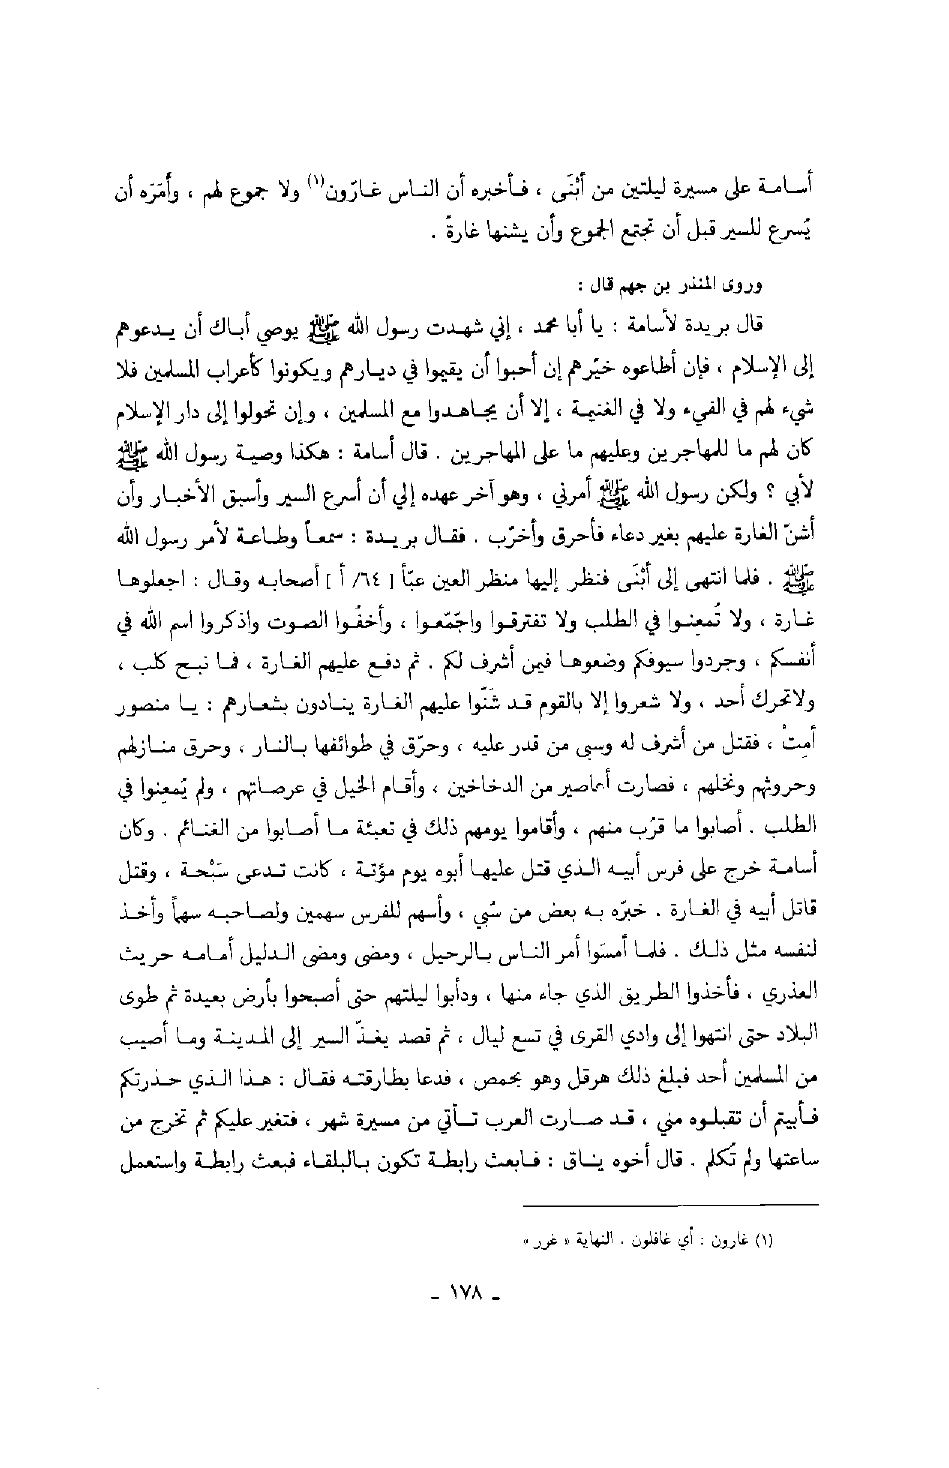 أسامة على مسيرة ليلتين من أُبْنَى ، فأخبره أن الناس غارّون(١) ولا جموع لهم ، وأَمَرَه أن
يُسرع للسير قبل أن تجتمع الجموع وأن يشنها غارةً .
وروى المنذر بن جهم قال :
قال بريدة لأسامة : يا أبا محمد ، إني شهدت رسول الله ﷺ يوصي أباك أن يدعوهم
إلى الإسلام ، فإن أطاعوه خيّرهم إن أحبوا أن يقيموا في ديارهم ويكونوا كأعراب المسلمين فلا
شيء لهم في الفيء ولا في الغنيمة ، إلا أن يجاهدوا مع المسلمين ، وإن تحولوا إلى دار الإسلام
كان لهم ما للمهاجرين وعليهم ما على المهاجرين . قال أسامة : هكذا وصية رسول الله ﷺ
لأبي ؟ ولكن رسول الله ﷺ أمرني ، وهو آخر عهده إلي أن أسرع السير وأسبق الأخبار وأن
أشنّ الغارة عليهم بغير دعاء فأحرق وأخرّب . فقال بريدة : سمعاً وطاعة لأمر رسول الله
ﷺ . فلما انتهى إلى أُبْنَى فنظر إليها منظر العين عبّأ [ ٦٤/ أ ] أصحابه وقال : اجعلوها
غارة ، ولا تُمعِنوا في الطلب ولا تفترقوا واجّمّعوا ، وأخفُوا الصوت واذكروا اسم الله في
أنفسكم ، وجردوا سيوفكم وضعوها فيمن أشرف لكم . ثم دفع عليهم الغارة ، فما نبح كلب ،
ولا تحرك أحد ، ولا شعروا إلا بالقوم قد شَنّوا عليهم الغارة ينادون بشعارهم : يا منصور
أَمِتْ ، فقتل من أشرف له وسبى من قدر عليه ، وحرّق في طوائفها بالنار ، وحرق منازلهم
وحروثهم ونخلهم ، فصارت أعاصير من الدخاخين ، وأقام الخيل في عرصاتهم ، ولم يُمعِنوا في
الطلب . أصابوا ما قرُب منهم ، وأقاموا يومهم ذلك في تعبئة ما أصابوا من الغنائم . وكان
أسامة خرج على فرس أبيه الذي قتل عليها أبوه يوم مؤتة ، كانت تدعى سَبْحة ، وقتل
قاتل أبيه في الغارة . خبّره به بعض من سُبي ، وأسهم للفرس سهمين ولصاحبه سهماً وأخذ
لنفسه مثل ذلك . فلما أمسَوا أمر الناس بالرحيل ، ومضى ومضى الدليل أمامه حريث
العذري ، فأخذوا الطريق الذي جاء منها ، ودأبوا ليلتهم حتى أصبحوا بأرض بعيدة ثم طوى
البلاد حتى انتهوا إلى وادي القرى في تسع ليال ، ثم قصد يغذّ السير إلى المدينة وما أصيب
من المسلمين أحد فبلغ ذلك هرقل وهو بحمص ، فدعا بطارقته فقال : هذا الذي حذرتكم
فأبيتم أن تقبلوه مني ، قد صارت العرب تأتي من مسيرة شهر ، فتغير عليكم ثم تخرج من
ساعتها ولم تُكلم . قال أخوه يناق : فابعث رابطة تكون بالبلقاء فبعث رابطة واستعمل
(١) غارون : أي غافلون . النهاية « غرر »
- ١٧٨ -